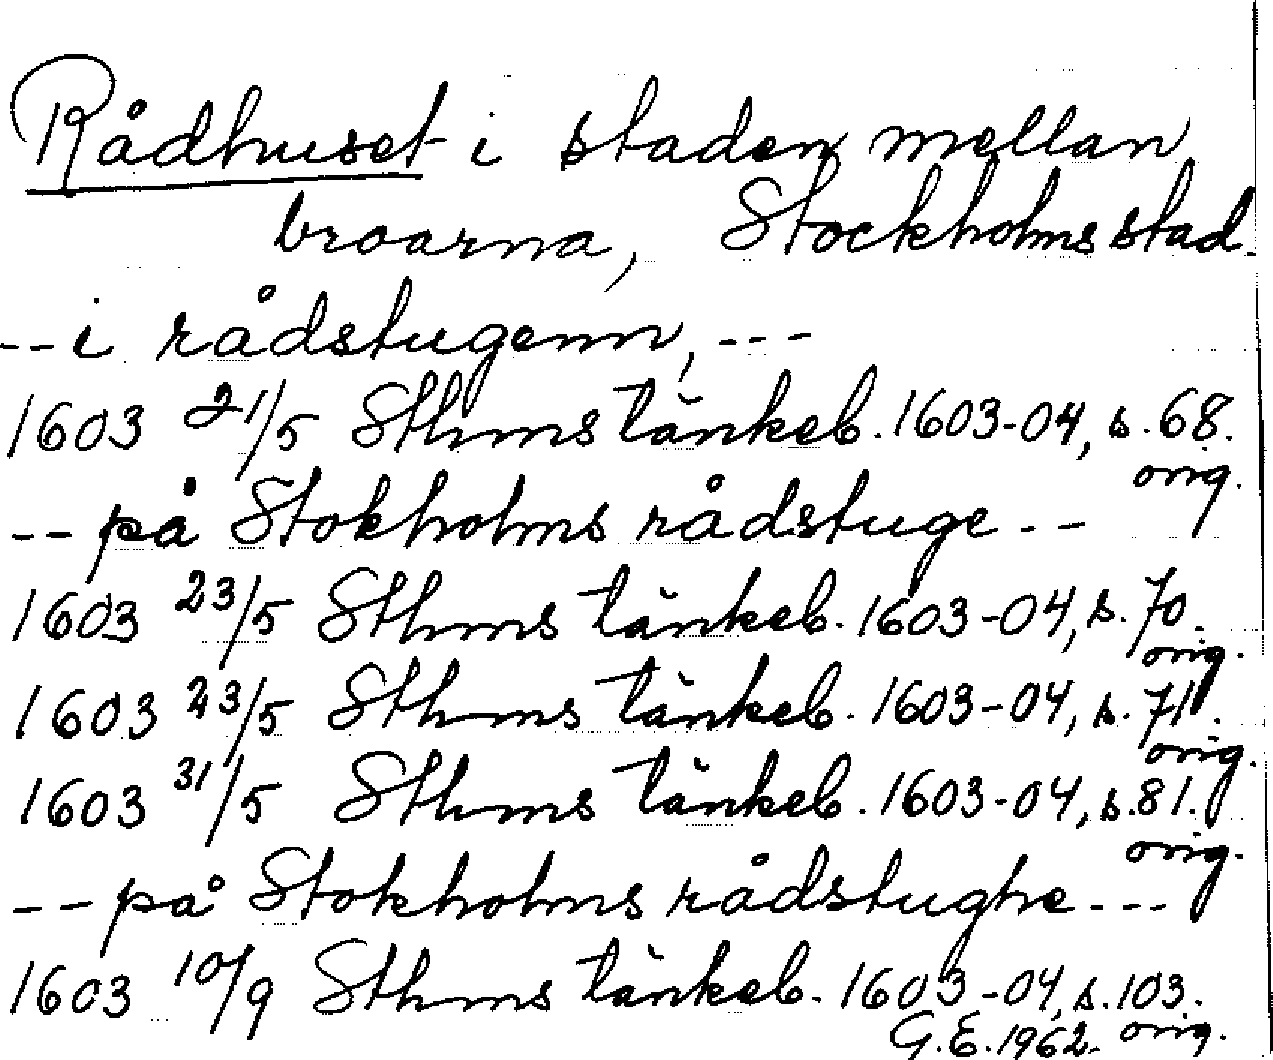 Rådhuset i staden mellan
broarna, Stockholms stad.
-- i rådstugenn, ---
1603 21/5 Sthms tänkeb. 1603-04, s. 68.
orig.
-- på Stokholms rådstuge --
1603 23/5 Sthms tänkeb. 1603-04, s. 70.
orig.
1603 23/5 Sthms tänkeb. 1603-04, s. 71.
orig.
1603 31/5 Sthms tänkeb. 1603-04, s. 81.
orig.
-- på Stokholms rådstughe ---
1603 10/9 Sthms tänkeb. 1603-04, s. 103.
G.E. 1962. orig.